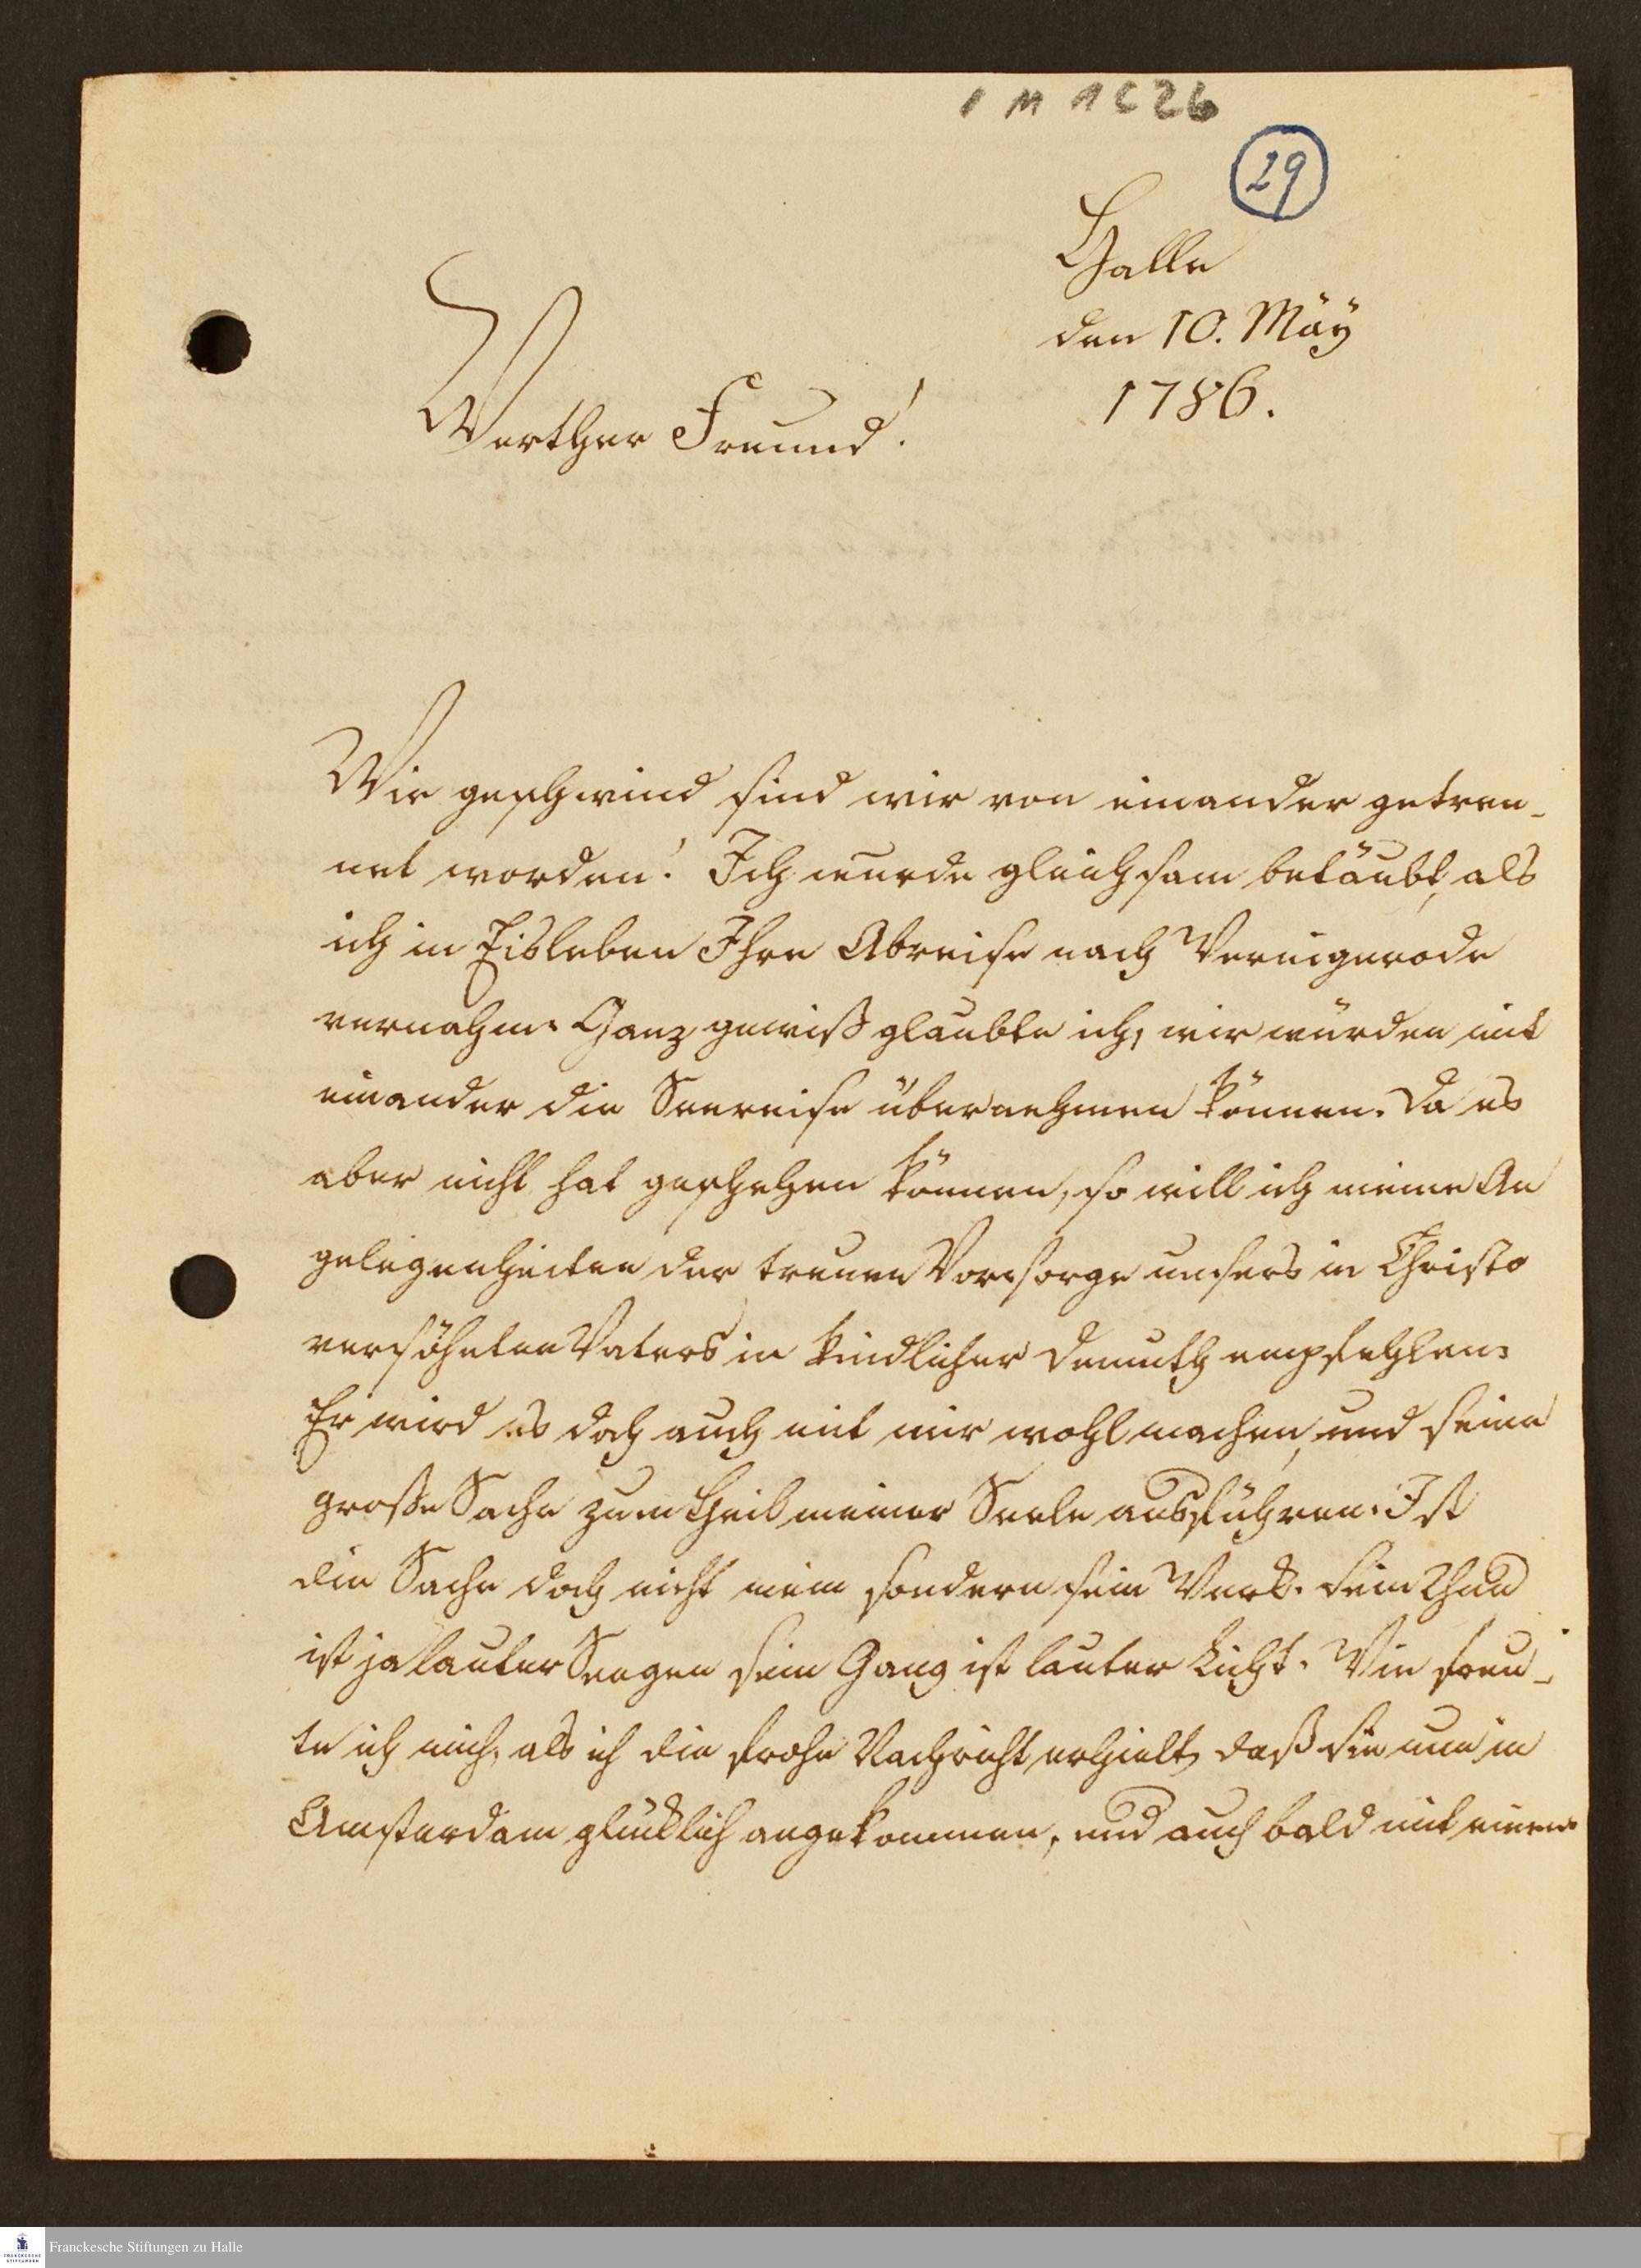 1 M 1 C 26
29
Halle
den 10. Mäy
1786.
Werther Freund!
Wie geschwind sind wir von einander getren-
net worden! Ich wurde gleichsam betäubt, als
ich in Eisleben Ihre Abreise nach Vernigerode
vernahm. Ganz gewiß glaubte ich, wir würden mit
einander die Seereise übernehmen können. Da es
aber nicht hat geschehen können, so will ich meine An
gelegenheiten der treuen Vorsorge unsers in Christo
versöhnten Vaters in kindlicher Demuth empfehlen.
Er wird es doch auch mit mir wohl machen, und seine
große Sache zum Heil meiner Seele ausführen. Ist
die Sache doch nicht mein sondern sein Werk. Sein Thun
ist ja lauter Seegen sein Gang ist lauter Licht. Wie freu-
te ich mich, als ich die frohe Nachricht erhielt, daß Sie nun in
Amsterdam glücklich angekommen, und auch bald mit einem
Franckesche Stiftungen zu Halle
FRANCKESCHE
STIFTUNGEN